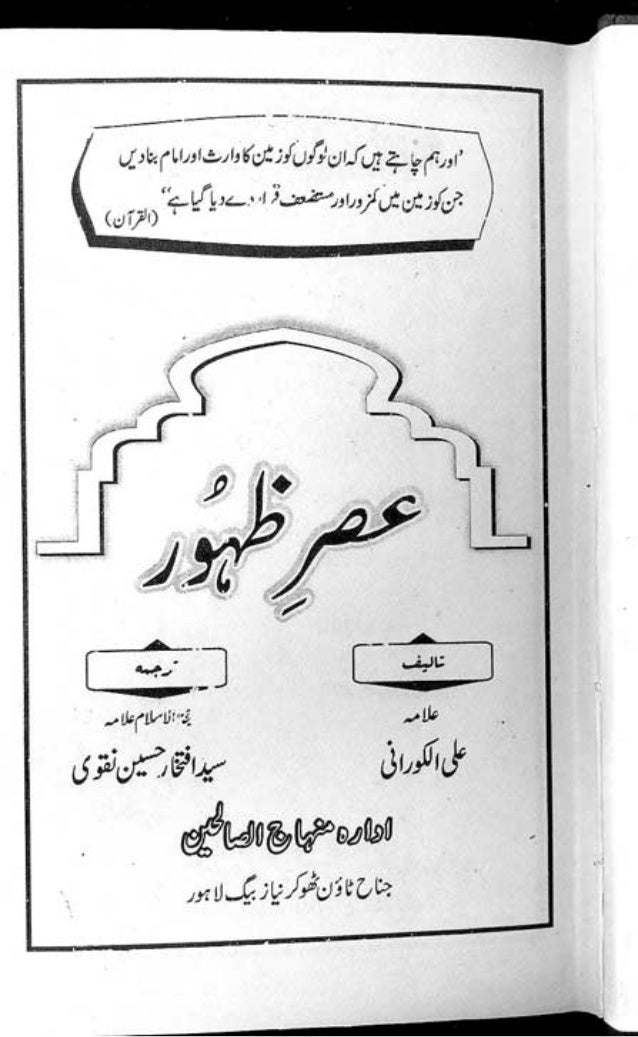 'اور ہم چاہتے ہیں کہ ان لوگوں کو زمین کا وارث اور امام بنا دیں
جن کو زمین میں کمزور اور مستضعف قرار دے دیا گیا ہے"
(القرآن)
عصرِ ظہُور
تالیف
ترجمہ
علامہ
حجۃ الاسلام علامہ
علی الکورانی
سید افتخار حسین نقوی
ادارہ منہاج الصالحین
جناح ٹاؤن ٹھوکر نیاز بیگ لاہور